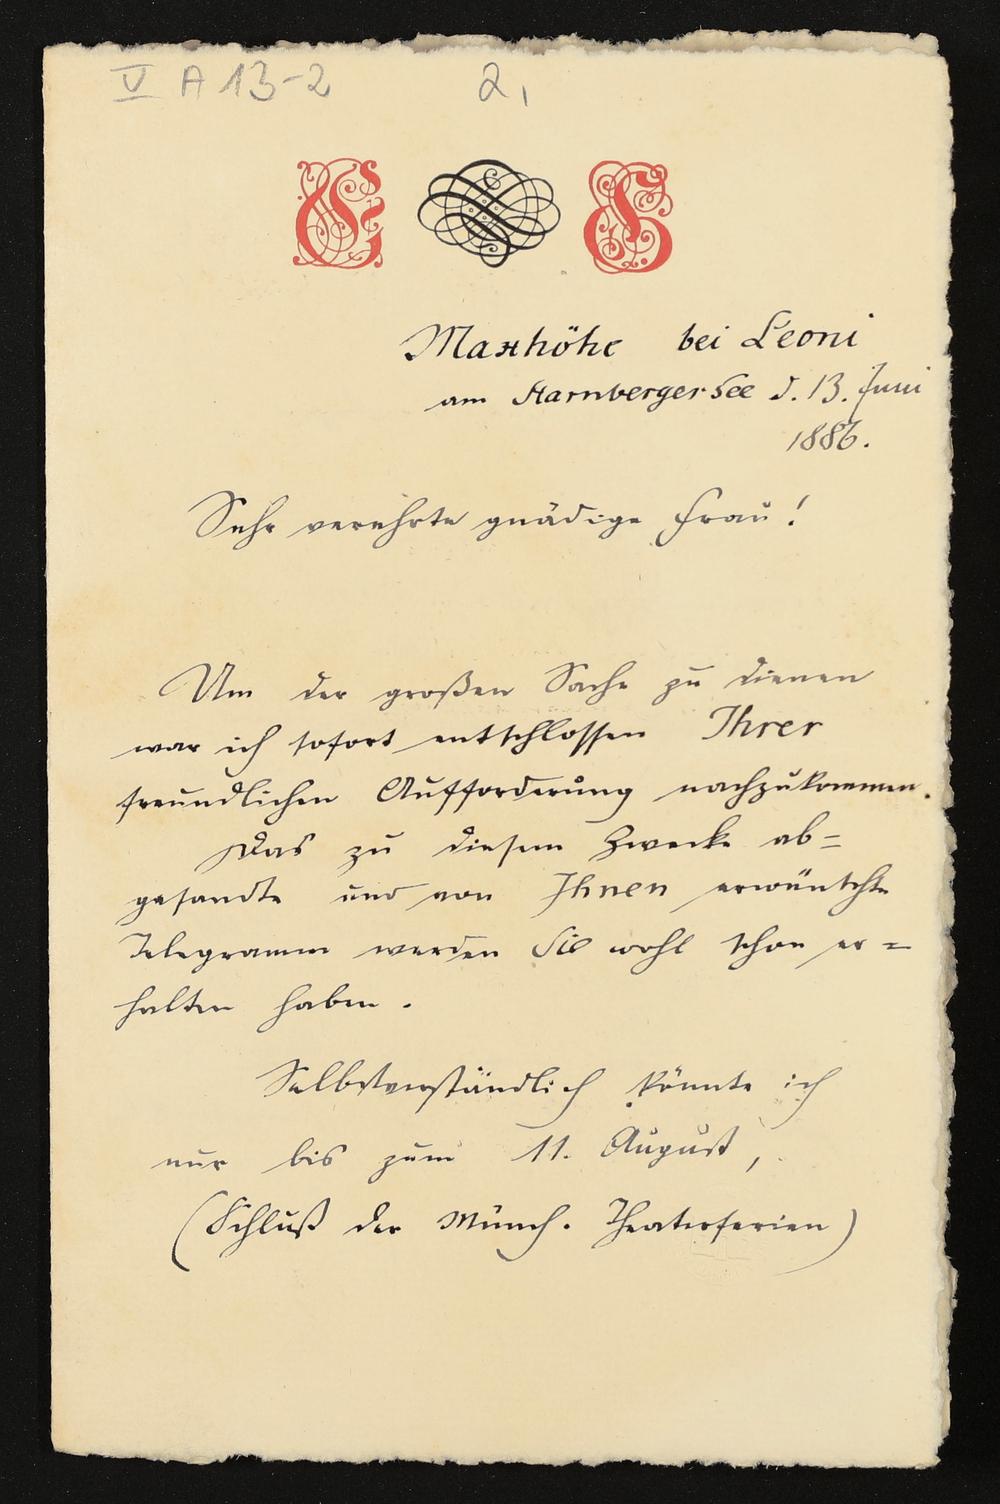 V A 13-2 2,
Maxhöhe bei Leoni
am Starnberger See d. 13. Juni
1886.
Sehr verehrte gnädige Frau!
Um der großen Sache zu dienen
war ich sofort entschlossen Ihrer
freundlichen Aufforderung nachzukommen.
Das zu diesem Zwecke ab=
gesandte und von Ihnen erwünschte
Telegramm werden Sie wohl schon er=
halten haben.
Selbstverständlich könnte ich
nur bis zum 11. August,
(Schluß der Münch. Theaterferien)